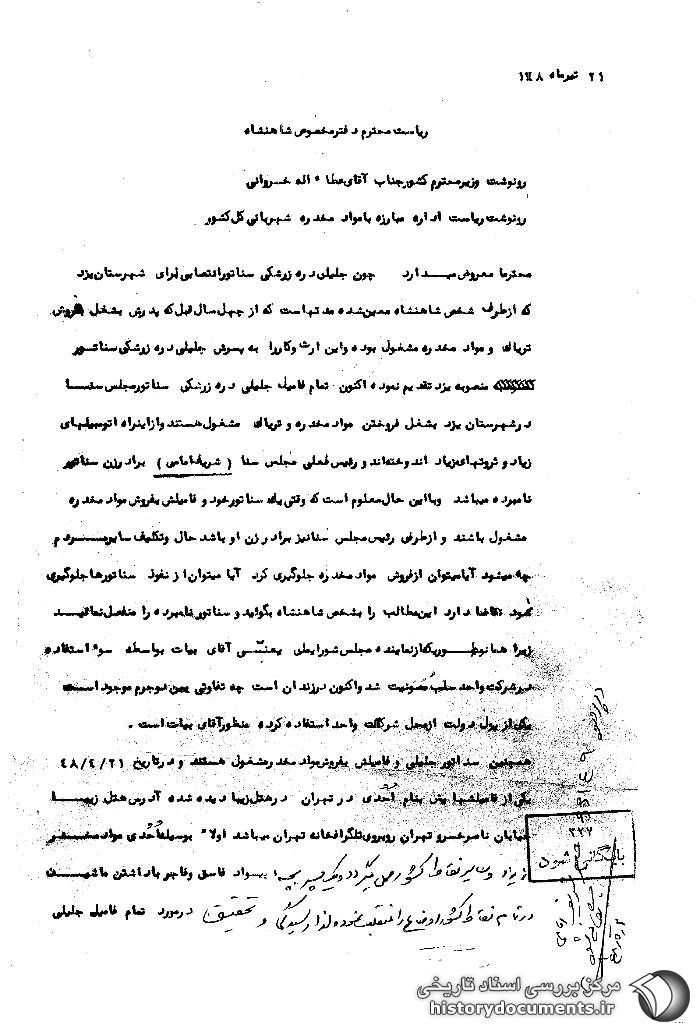 ۲۱ تیرماه ۱۳۴۸
ریاست محترم دفتر مخصوص شاهنشاه
رونوشت وزیر محترم کشور جناب آقای عطاء اله خسروانی
رونوشت ریاست اداره مبارزه با مواد مخدره شهربانی کل کشور
محترما معروض میدارد چون جلیلی دره زرشکی سناتور انتصابی برای شهرستان یزد
که از طرف شخص شاهنشاه معین شده مدتهاست که از چهل سال قبل که پدرش بشغل فروش
تریاک و مواد مخدره مشغول بوده و این ارث و کار را به پسرش جلیلی دره زرشکی سناتور
منصوبه یزد تقدیم نموده اکنون تمام فامیل جلیلی دره زرشکی سناتور مجلس سنا
در شهرستان یزد بشغل فروختن مواد مخدره و تریاک مشغول هستند و از اینراه اتومبیلهای
زیاد و ثروتهای زیاد اندوخته‌اند و رئیس فعلی مجلس سنا ( شریف امامی ) برادر زن سناتور
نامبرده میباشد وبا این حال معلوم است که وقتی یک سناتور خود و فامیلش بفروش مواد مخدره
مشغول باشند و از طرفی رئیس مجلس سنا نیز برادر زن او باشد حال وتکلیف سایر مردم
چه میشود آیا میتوان از فروش مواد مخدره جلوگیری کرد آیا میتوان از نفوذ سناتورها جلوگیری
نمود تقاضا دارد این مطالب را بشخص شاهنشاه بگوئید و سناتور نامبرده را منفصل نمائید
زیرا همانطوریکه از نماینده مجلس شورایملی یعنی آقای بیات بواسطه سوء استفاده
در شرکت واحد سلب مصونیت شد واکنون در زندان است چه تفاوتی بین دو مجرم موجود است
یکی از پول دولت از محل شرکت واحد استفاده کرده منظور آقای بیات است .
همچنین سناتور جلیلی و فامیلش بفروش مواد مخدر مشغول هستند و در تاریخ ۴۸/۴/۲۱
یکی از فامیلشها یش بنام احدی در تهران در هتل زیبا دیده شده آدرس هتل زیبا
خیابان ناصر خسرو تهران روبروی تلگرافخانه تهران میباشد اولا" بوسیله احدی مواد مخدر
از یزد و سایر نقاط کشور حمل میگردد و یک پسر بچه بیسواد فاسق وفاجر با داشتن ماشین
در تمام نقاط کشور اوضاع را منقلب نموده لذا رسیدگی و تحقیق در مورد تمام فامیل جلیلی
۲۲۷
بایگانی شود
مرکز بررسی اسناد تاریخی
historydocuments.ir